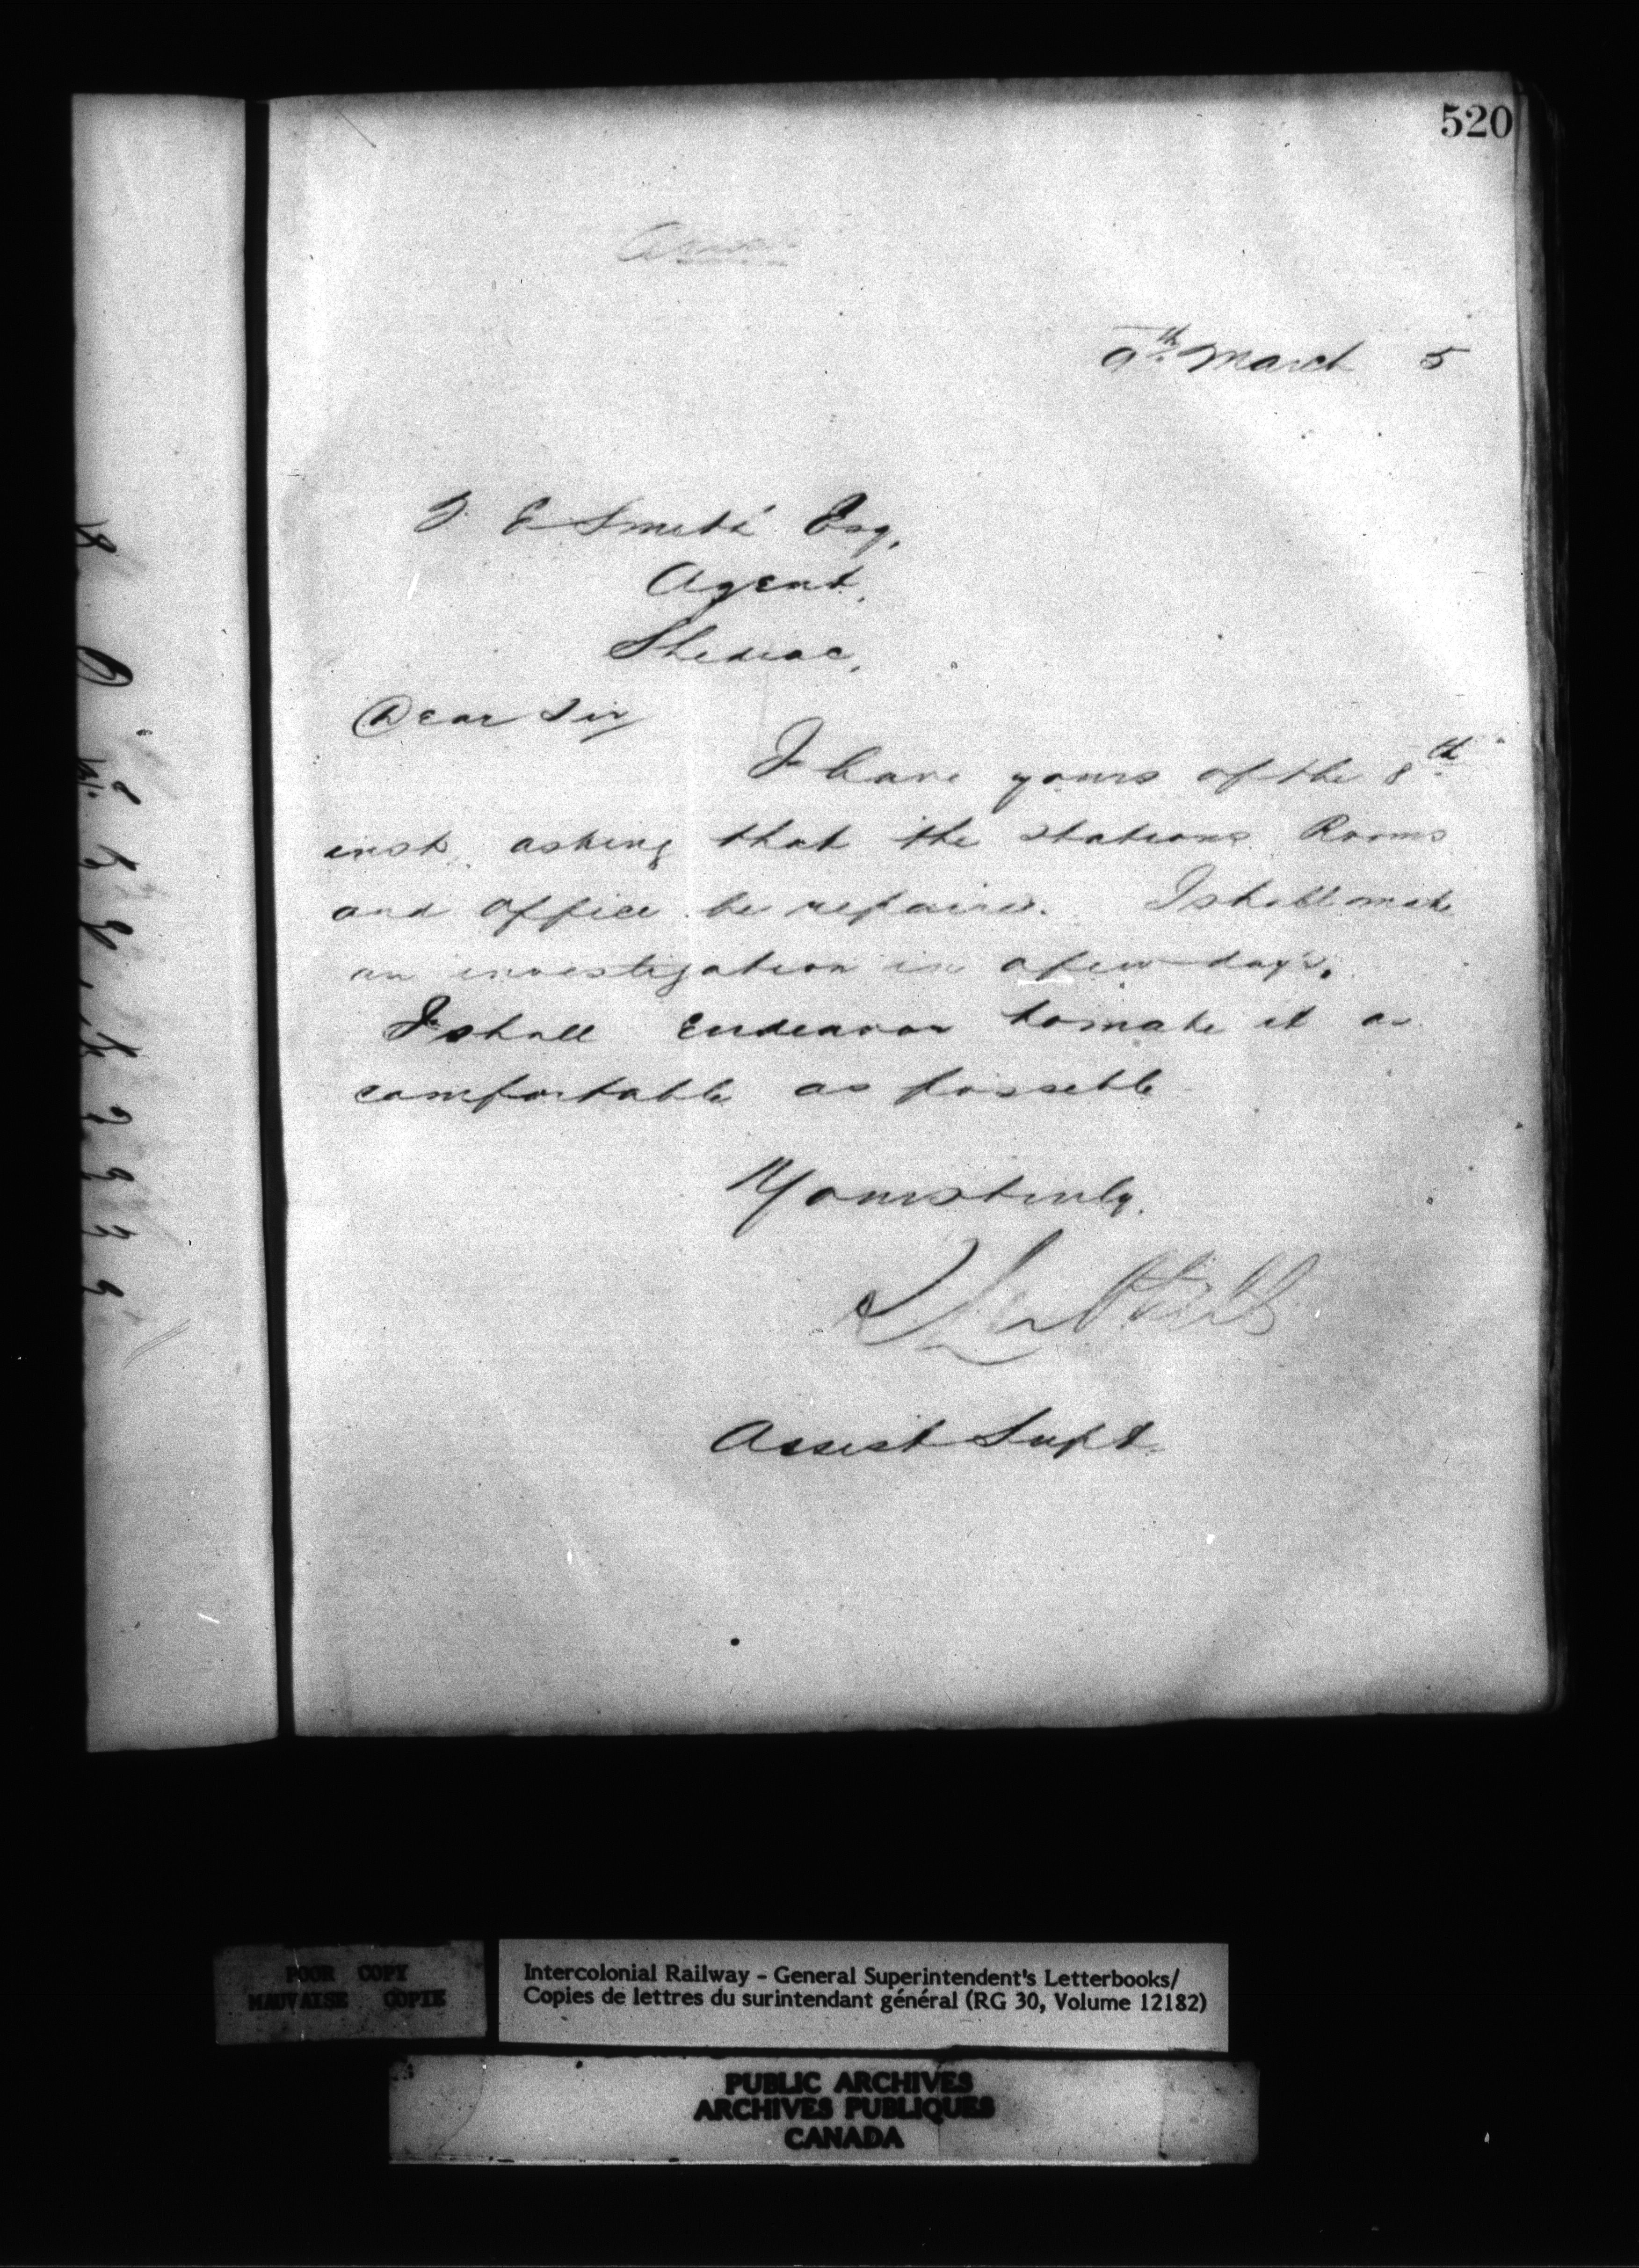 520
9th March 5
E Smith Esq,
Agent,
Shediac,
Dear Sir
I have yours of the 8th
inst, asking that the stations Rooms
and Office be repaired. I shall make
an investigation in a few days.
I shall Endeavor to make it as
comfortable as possible
Yours truly,
Assist Supt.
POOR COPY
MAUVAISE COPIE
Intercolonial Railway - General Superintendent's Letterbooks/
Copies de lettres du surintendant général (RG 30, Volume 12182)
PUBLIC ARCHIVES
ARCHIVES PUBLIQUES
CANADA